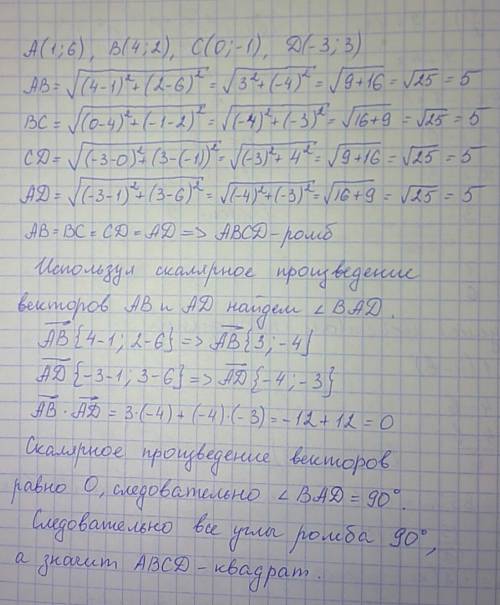 A(1;6), B(4;2), C(0;-1), D(-3;3)
AB = √(4-1)²+(2-6)² = √3²+(-4)² = √9+16 = √25 = 5
BC = √(0-4)²+(-1-2)² = √(-4)²+(-3)² = √16+9 = √25 = 5
CD = √(-3-0)²+(3-(-1))² = √(-3)²+4² = √9+16 = √25 = 5
AD = √(-3-1)²+(3-6)² = √(-4)²+(-3)² = √16+9 = √25 = 5
AB = BC = CD = AD => ABCD - ромб
Используя скалярное произведение
векторов AB и AD найдем ∠BAD.
AB{4-1; 2-6} => AB{3; -4}
AD{-3-1; 3-6} => AD{-4; -3}
AB · AD = 3·(-4) + (-4)·(-3) = -12 + 12 = 0
Скалярное произведение векторов
равно 0, следовательно ∠BAD = 90°.
Следовательно все углы ромба 90°,
а значит ABCD - квадрат.